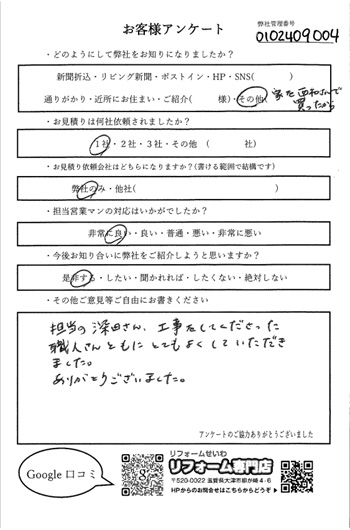 お客様アンケート
弊社管理番号
0102409004
・どのようにして弊社をお知りになりましたか？
新聞折込・リビング新聞・ポストイン・HP・SNS(　　　)
通りがかり・近所にお住まい・ご紹介(　　様)・その他(
家を西和さんで
買ったから
・お見積りは何社依頼されましたか？
1社・2社・3社・その他　(　　　社)
・お見積り依頼会社はどちらになりますか？(書ける範囲で結構です)
弊社のみ・他社(　　　　　)
・担当営業マンの対応はいかがでしたか？
非常に良い・良い・普通・悪い・非常に悪い
・今後お知り合いに弊社をご紹介しようと思いますか？
是非する・したい・聞かれれば・したくない・絶対しない
・その他ご意見等ご自由にお書きください
担当の深田さん、工事をしてくださった
職人さんともにとてもよくしていただき
ました。
ありがとうございました。
アンケートのご協力ありがとうございました
Google 口コミ
リフォームせいわ
リフォーム専門店
〒520-0022 滋賀県大津市柳が崎4-6
HPからのお問合せはこちらからどうぞ